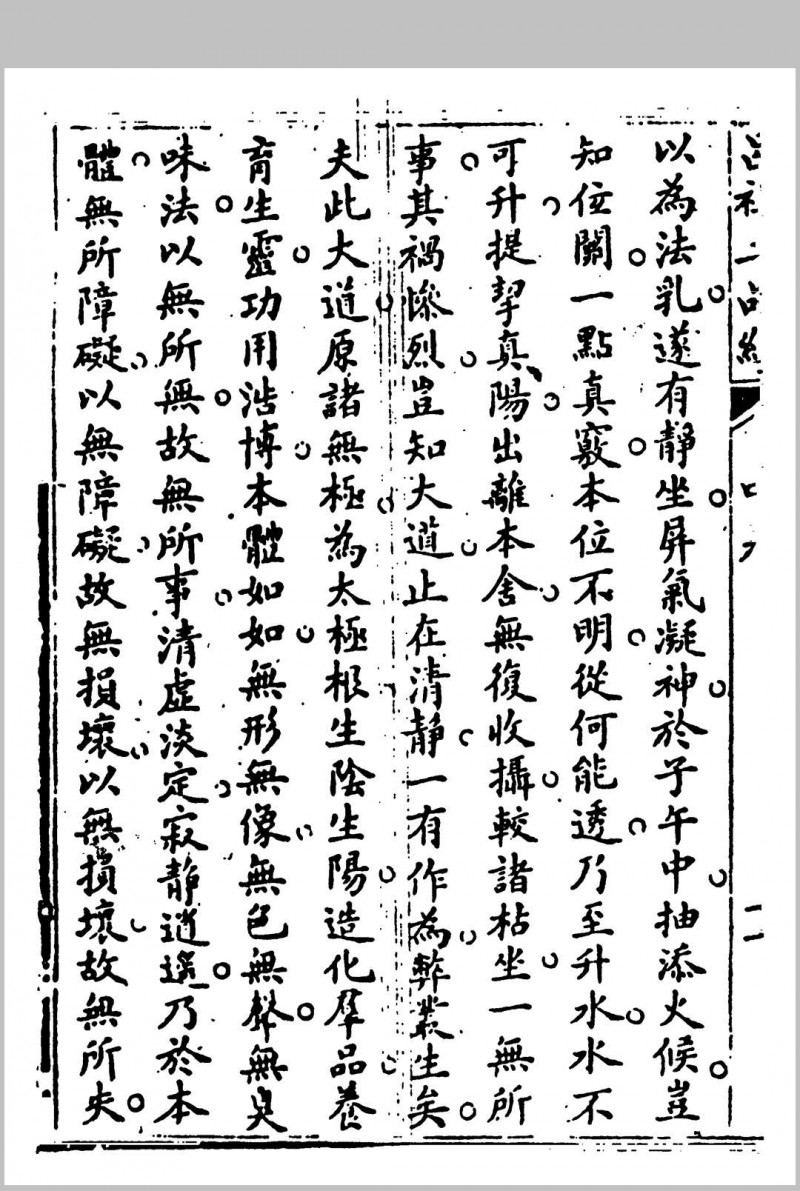 以為法乳遂有靜坐屏氣凝神於子午中抽添火候豈
知位關一點真竅本位不明從何能透乃至升水水不
可升提挈真陽出離本舍無復收攝較諸枯坐一無所
事其禍慘烈豈知大道止在清靜一有作為弊叢生矣
夫此大道原諸無極為太極根生陰生陽造化羣品養
育生靈功用浩博本體如如無形無像無色無聲無臭
味法以無所無故無所事清虛淡定寂靜逍遙乃於本
體無所障礙以無障礙故無損壞以無損壞故無所失